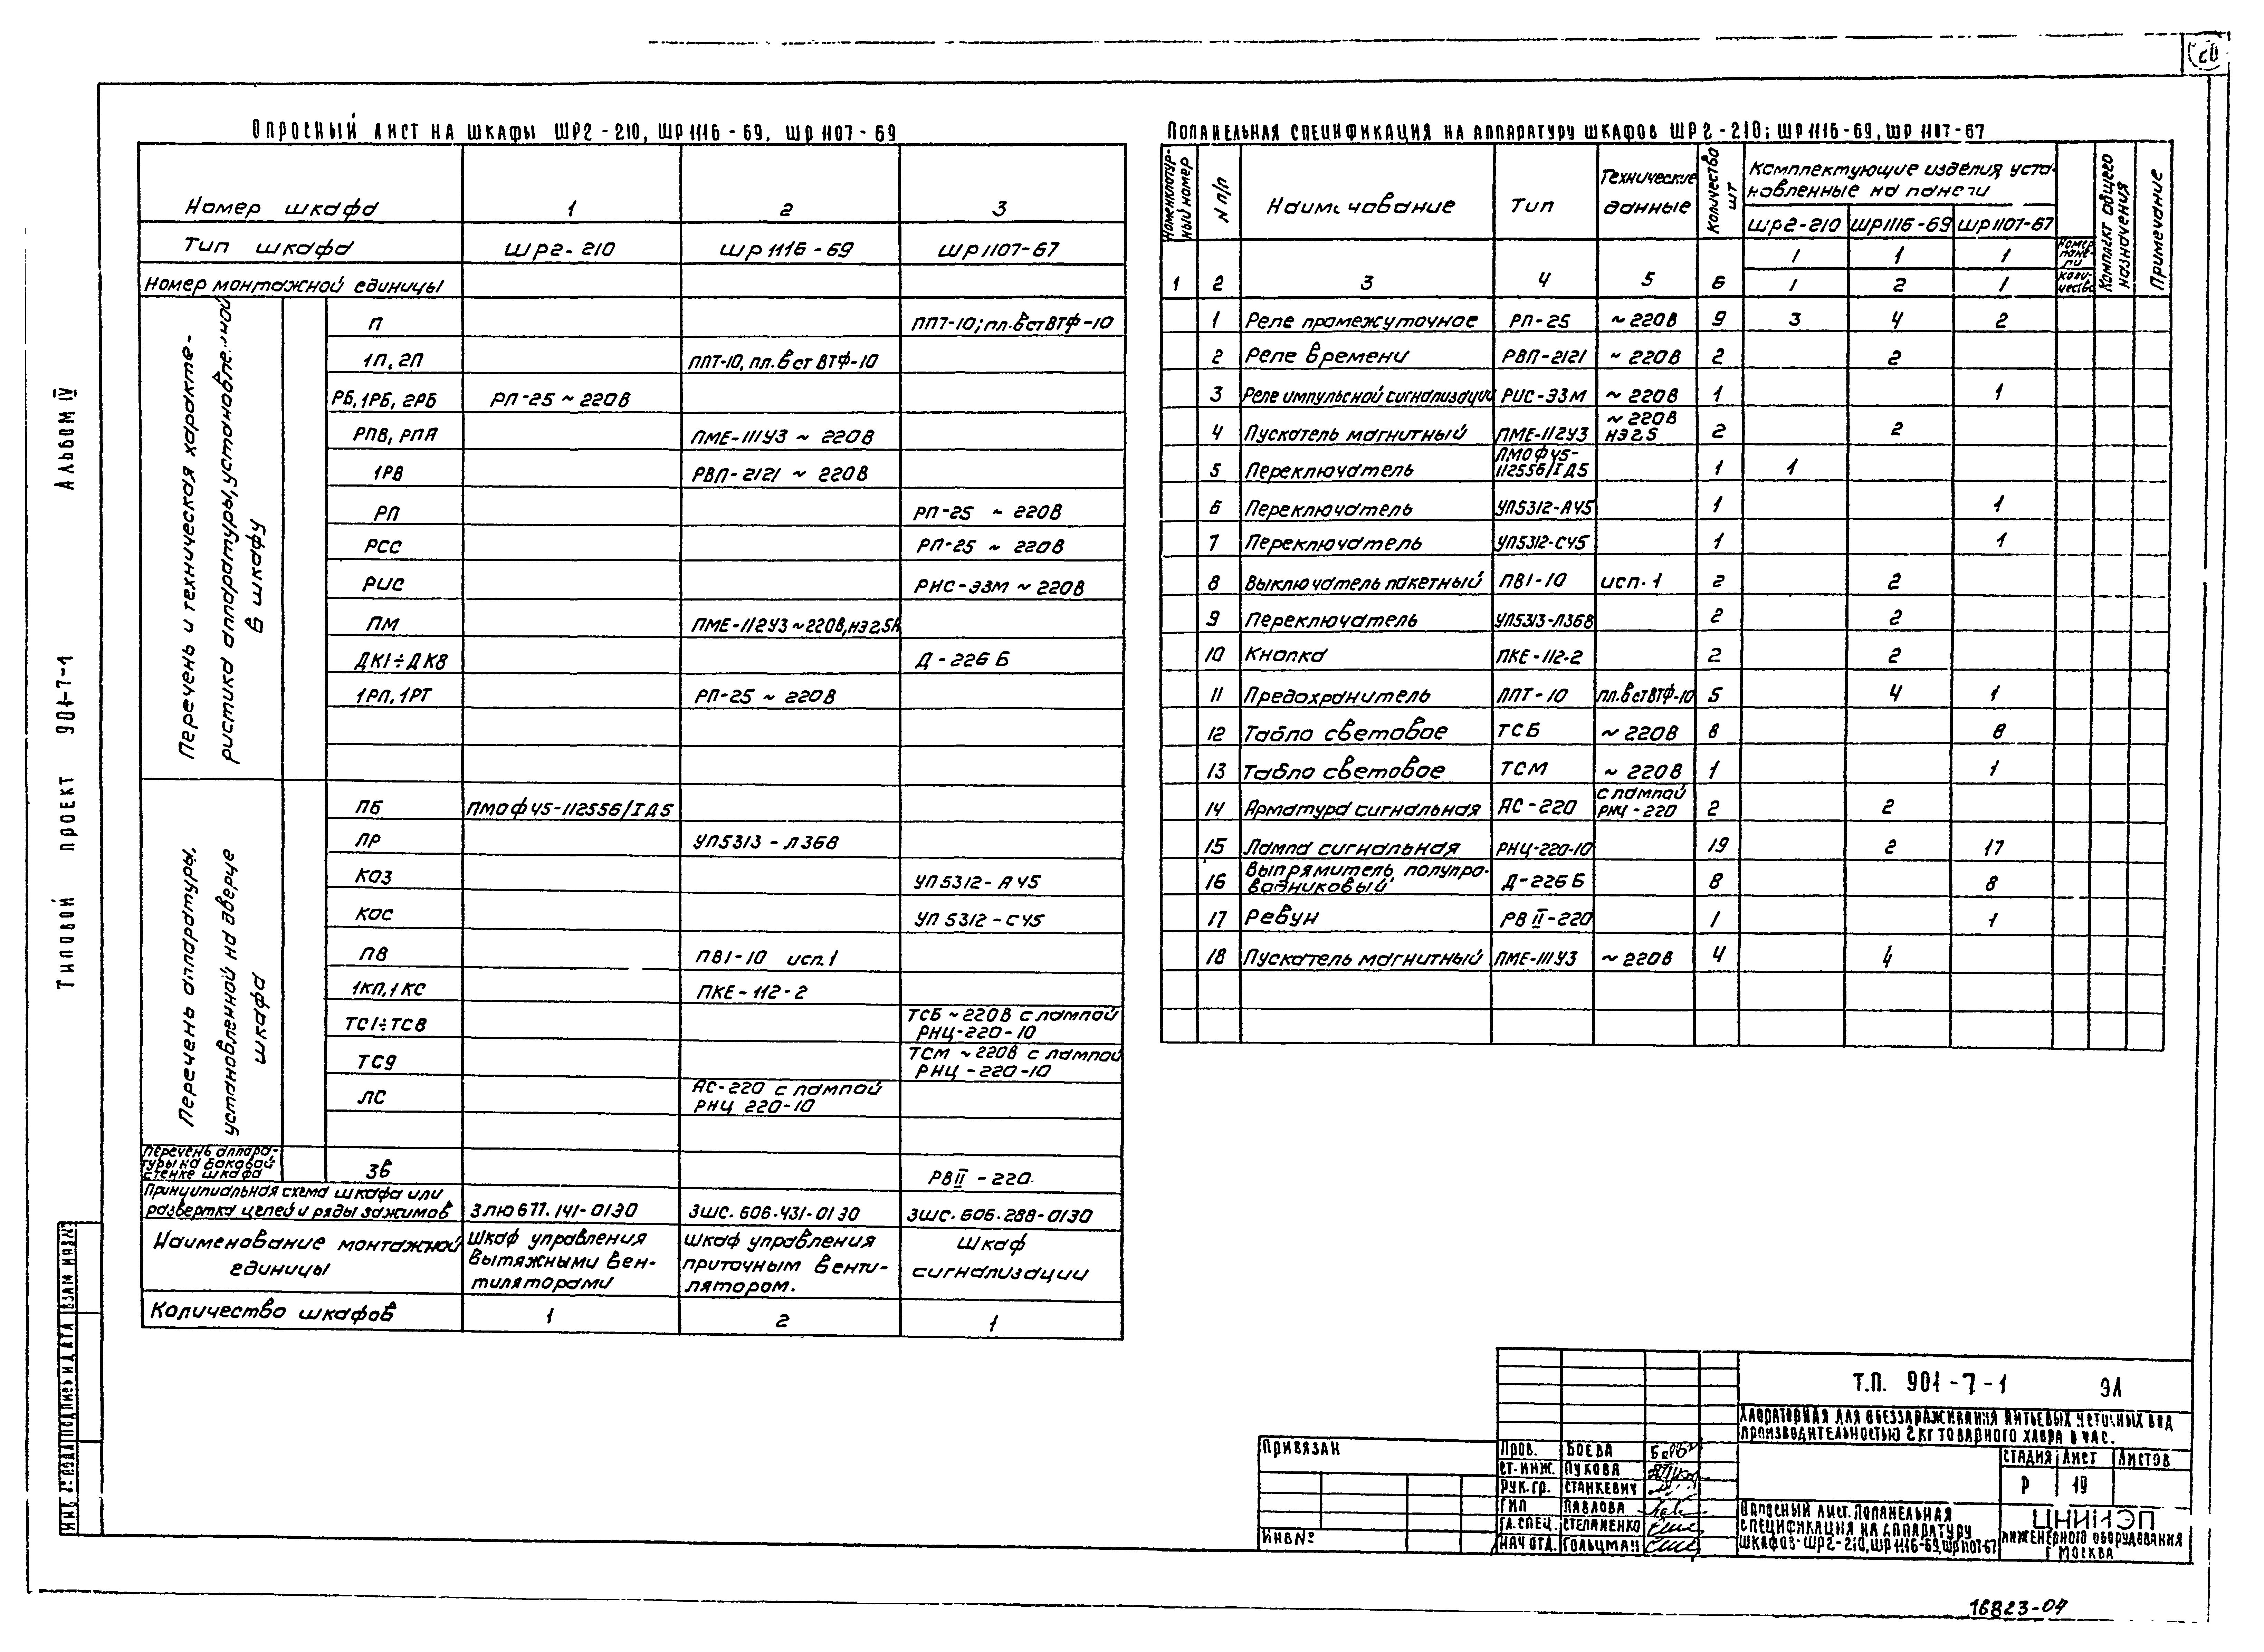 20
Опросный лист на шкафы ШР2-210, ШР1116-69, ШР1107-69
Номер шкафа 1 2 3
Тип шкафа ШР2-210 ШР1116-69 ШР1107-67
Номер монтажной единицы
Перечень и техническая характе-
ристика аппаратуры, установленной
в шкафу
П ППТ-10; пл.вст ВТФ-10
1П, 2П ППТ-10, пл.вст ВТФ-10
РБ, 1РБ, 2РБ РП-25 ~ 220В
РПВ, РПА ПМЕ-111У3 ~ 220В
1РВ РВП-2121 ~ 220В
РП РП-25 ~ 220В
РСС РП-25 ~ 220В
РИС РНС-Э3М ~ 220В
ПМ ПМЕ-112У3 ~220В, нэ2,5А
ДК1÷ДК8 Д-226Б
1РП, 1РТ РП-25 ~ 220В
Перечень аппаратуры,
установленной на дверце
шкафа
ПБ ПМОФ45-112556/IД5
ПР УП5313-Л368
КОЗ УП5312-А45
КОС УП5312-С45
ПВ ПВ1-10 исп.1
1КП, 1КС ПКЕ-112-2
ТС1÷ТС8 ТСБ ~220В с лампой
РНЦ-220-10
ТС9 ТСМ ~220В с лампой
РНЦ-220-10
ЛС АС-220 с лампой
РНЦ 220-10
Перечень аппара-
туры на боковой
стенке шкафа
ЗВ РВII-220.
Принципиальная схема шкафа или
развертка цепей и ряды зажимов 3ЛЮ677.141-0130 3ШС.606.431-0130 3ШС.606.288-0130
Наименование монтажной
единицы
Шкаф управления
вытяжными вен-
тиляторами
Шкаф управления
приточным венти-
лятором.
Шкаф
сигнализации
Количество шкафов 1 2 1
Попанельная спецификация на аппаратуру шкафов ШР2-210; ШР1116-69, ШР1107-67
Номенклатур-
ный номер
N п/п
Наименование
Тип
Технические
данные
Количество
шт
Комплектующие изделия уста-
новленные на панели
ШР2-210 ШР1116-69 ШР1107-67
1 1 1
Номер
пане-
ли
1 2 1
Коли-
чество
Комплект общего
назначения
Примечание
1 2 3 4 5 6
1 Реле промежуточное РП-25 ~220В 9 3 4 2
2 Реле времени РВП-2121 ~220В 2 2
3 Реле импульсной сигнализации РИС-Э3М ~220В 1 1
4 Пускатель магнитный ПМЕ-112У3 ~220В
нэ2.5 2 2
5 Переключатель ПМОФ45-
112556/IД5 1 1
6 Переключатель УП5312-А45 1 1
7 Переключатель УП5312-С45 1 1
8 Выключатель пакетный ПВ1-10 исп.1 2 2
9 Переключатель УП5313-Л368 2 2
10 Кнопка ПКЕ-112-2 2 2
11 Предохранитель ППТ-10 пл.вст ВТФ-10 5 4 1
12 Табло световое ТСБ ~220В 8 8
13 Табло световое ТСМ ~220В 1 1
14 Арматура сигнальная АС-220 с лампой
РНЦ-220 2 2
15 Лампа сигнальная РНЦ-220-10 19 2 17
16 Выпрямитель полупро-
водниковый Д-226Б 8 8
17 Ревун РВII-220 1 1
18 Пускатель магнитный ПМЕ-111У3 ~220В 4 4
Альбом IV
Типовой проект 901-7-1
Инв № подл Подпись и дата Взам инв №
Привязан
Инв №
Пров. Боева
Ст.инж. Пукова
Рук.гр. Станкевич
ГИП Павлова
Гл.спец. Степаненко
Нач отд. Гольцман
Т.П. 901-7-1 ЭЛ
Хлораторная для обеззараживания питьевых и сточных вод
производительностью 2 кг товарного хлора в час.
Стадия Лист Листов
Р 19
Опросный лист. Попанельная
спецификация на аппаратуру
шкафов ШР2-210, ШР1116-69, ШР1107-67
ЦНИИЭП
инженерного оборудования
г Москва
16823-04